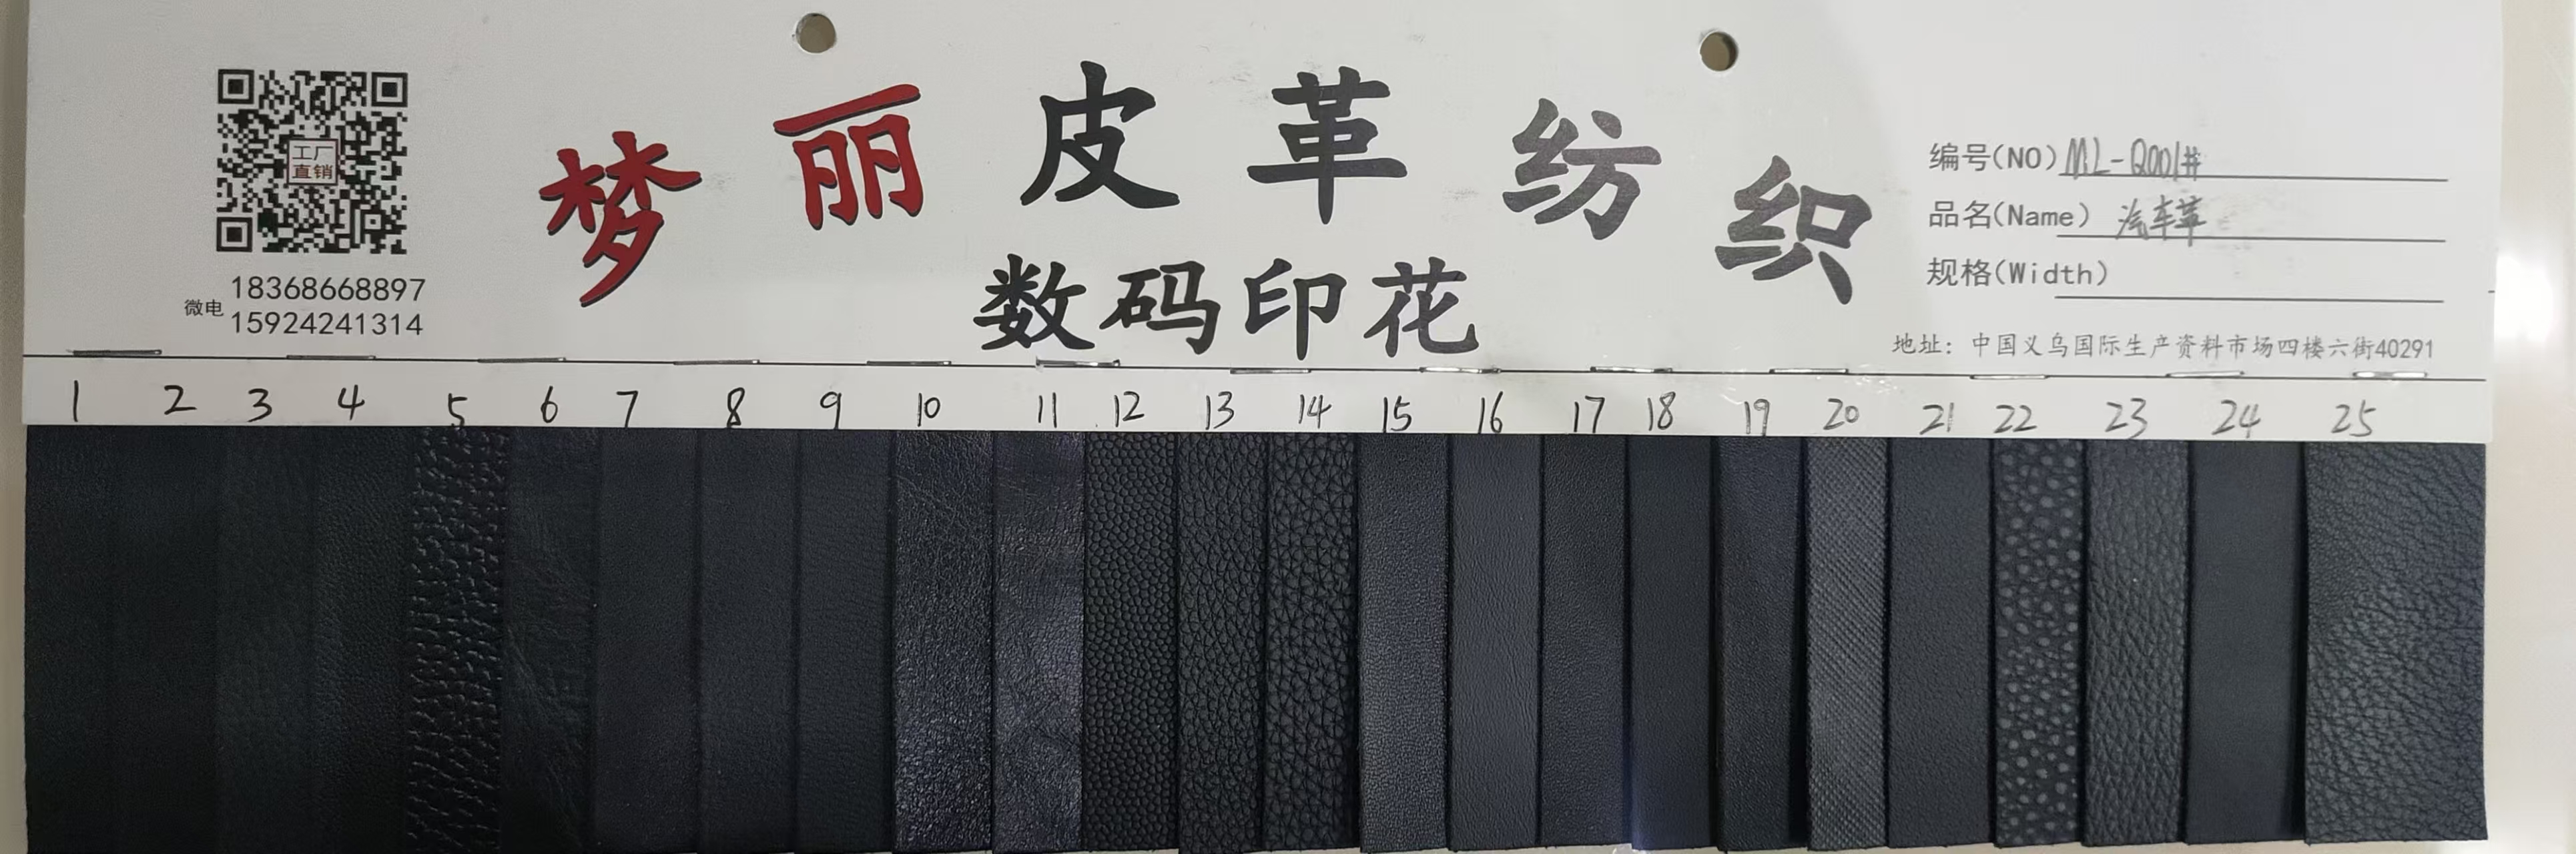 工厂
直销
微电 18368668897
15924241314
梦丽皮革纺织
数码印花
编号(NO) ML-Q001#
品名(Name) 汽车革
规格(Width)
地址：中国义乌国际生产资料市场四楼六街40291
1 2 3 4 5 6 7 8 9 10 11 12 13 14 15 16 17 18 19 20 21 22 23 24 25